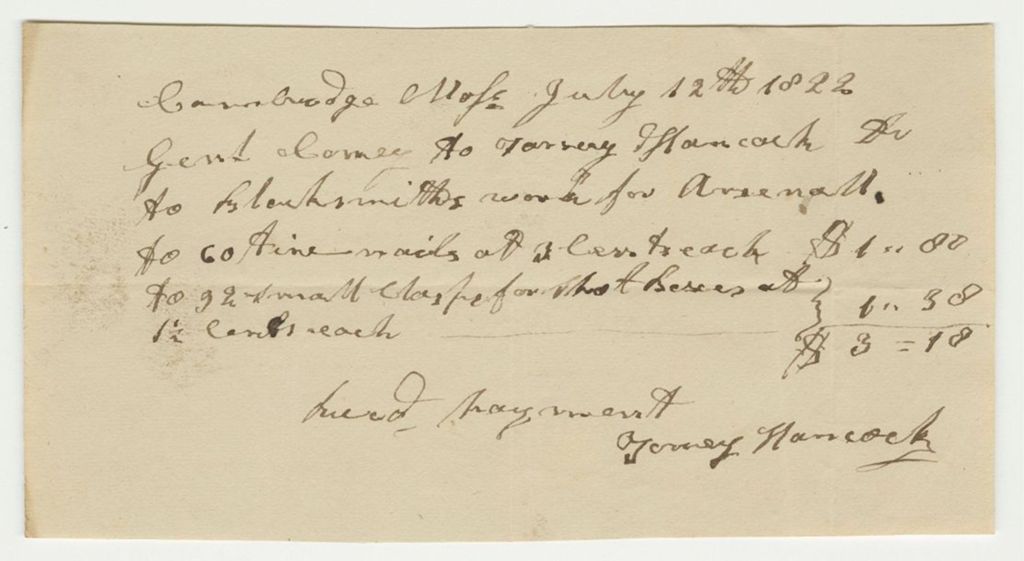 Cambridge Mass July 12th 1822
Gent Comey to Torrey Hancock Dr
to Blacksmiths work for Arsenall.
to 60 tine nails at 3 Cents each $ 1 " 80
to 92 small Clasps for Shot Boxes at } 1 " 38
1½ Cents each $ 3 = 18
Recd payment
Torrey Hancock